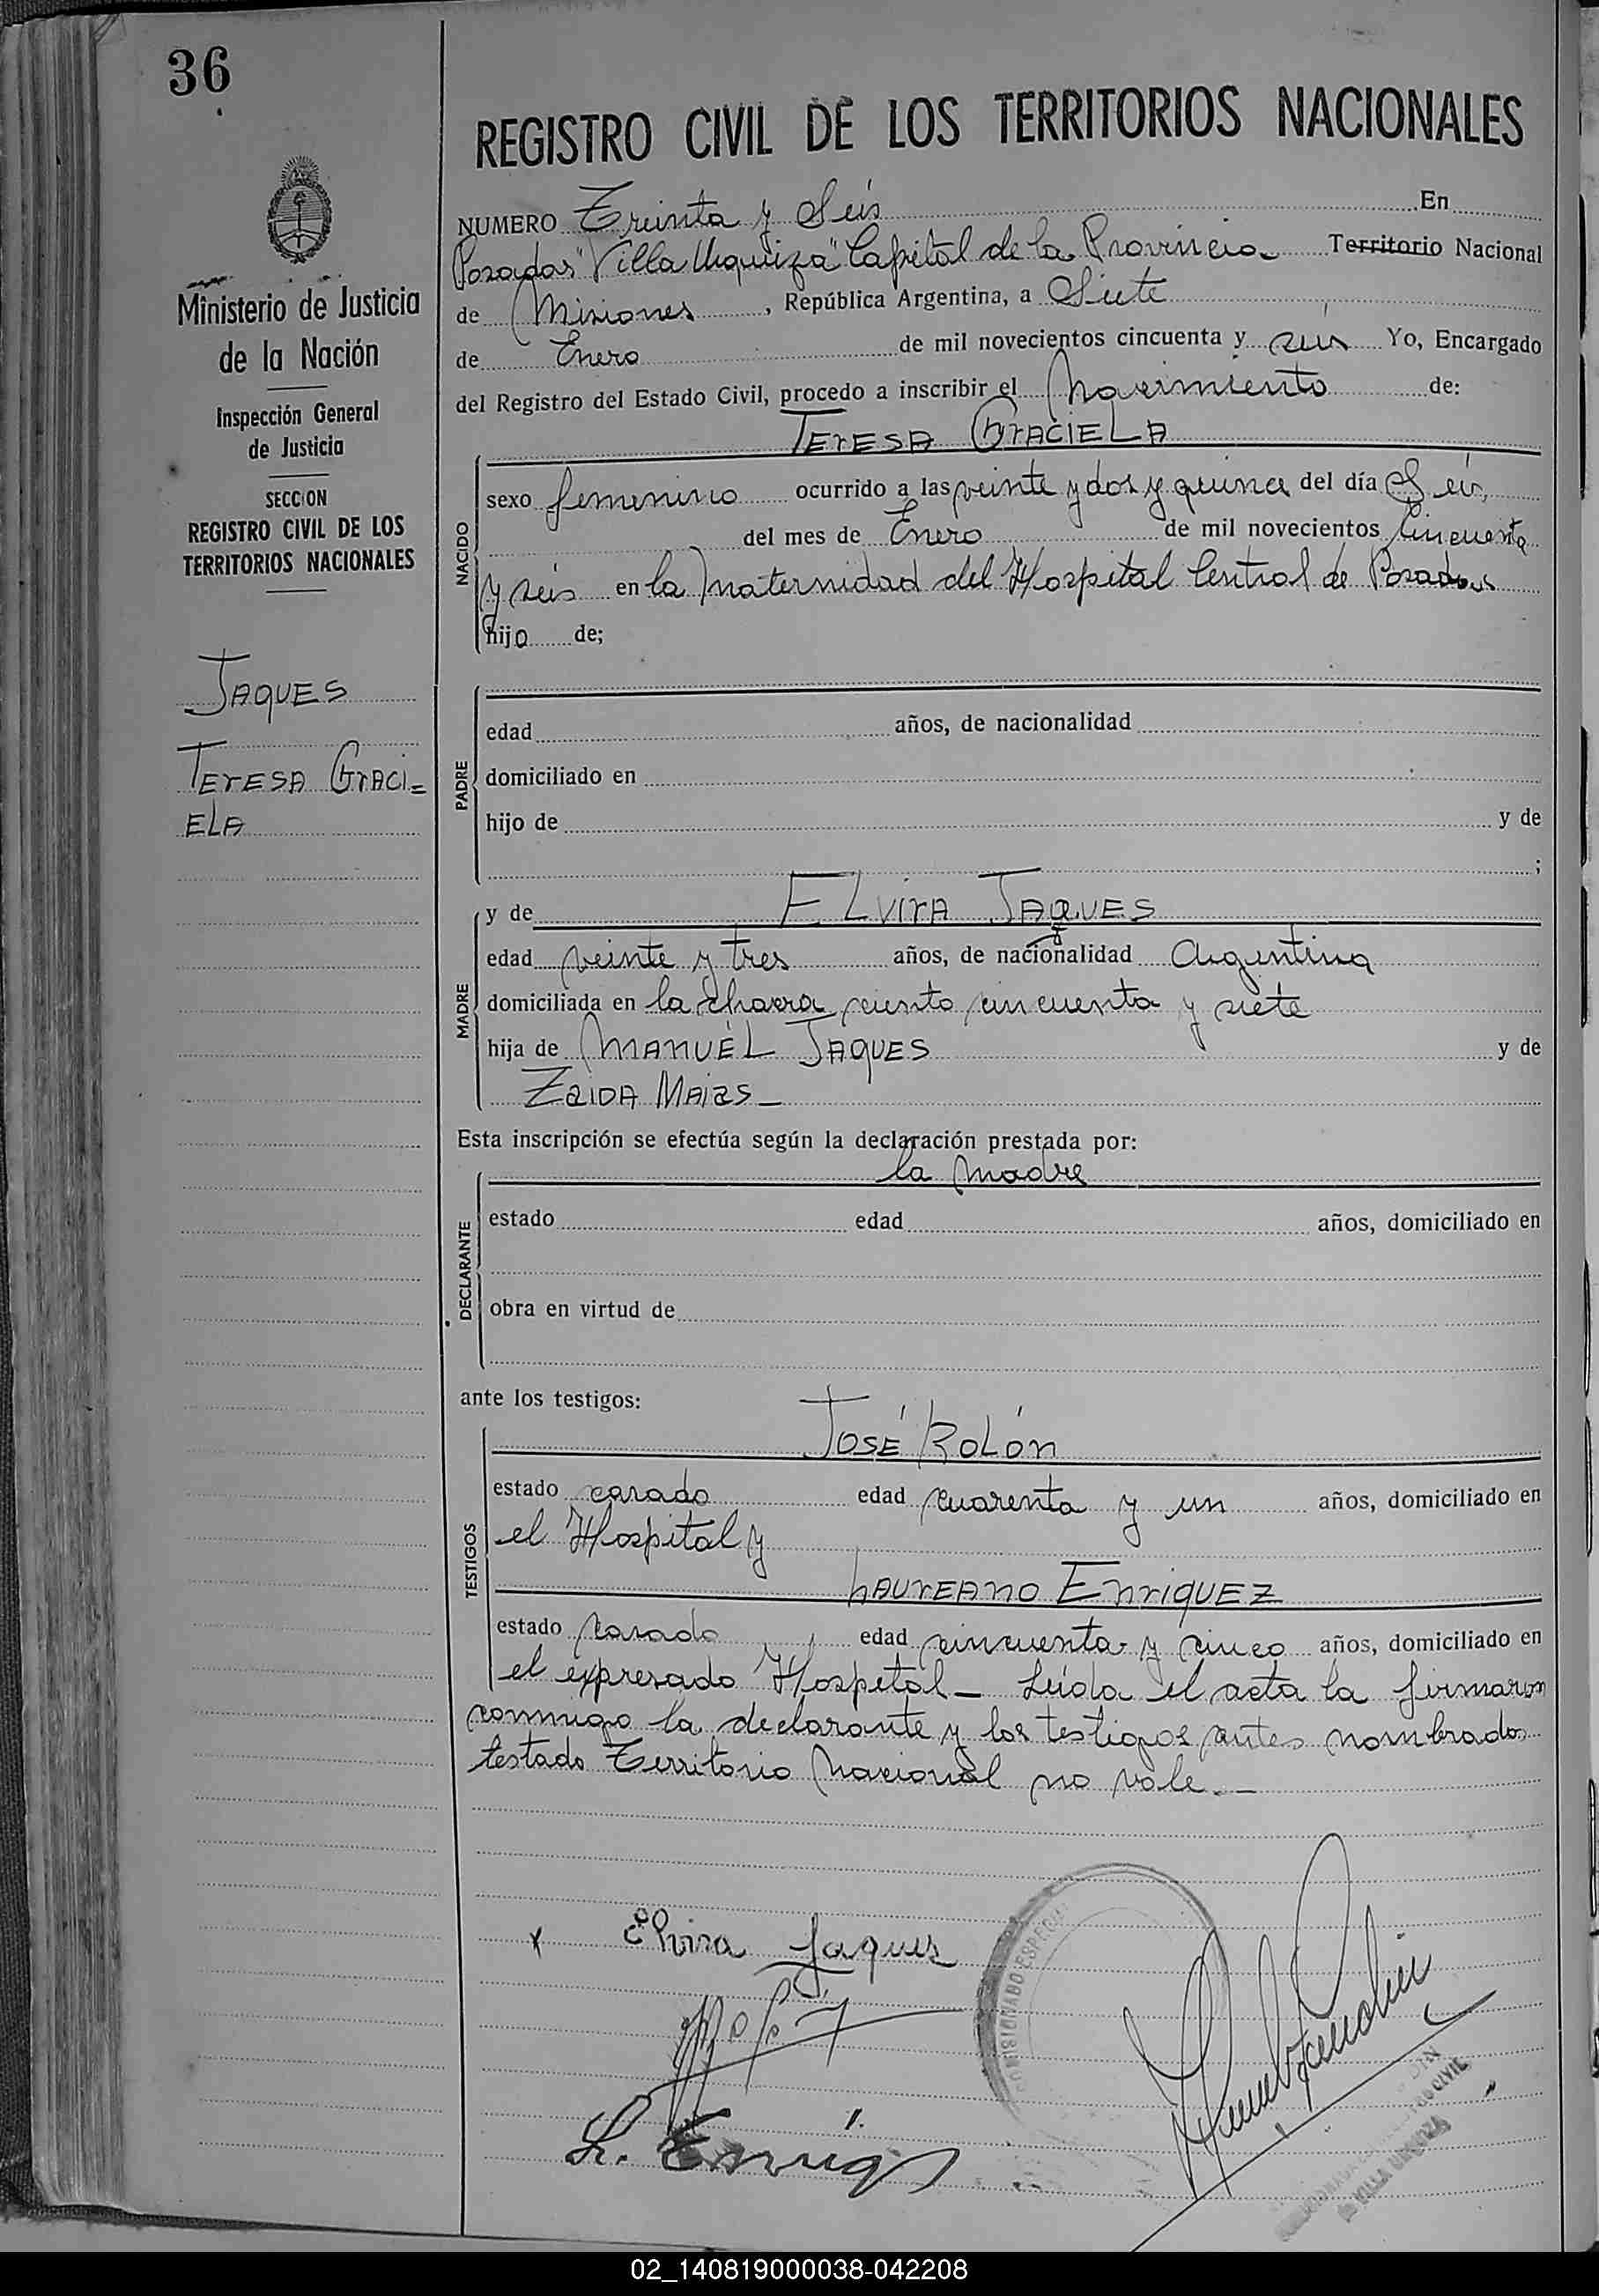 36
Ministerio de Justicia
de la Nación
Inspección General
de Justicia
SECCION
REGISTRO CIVIL DE LOS
TERRITORIOS NACIONALES
JAQUES
TERESA GRACI=
ELA
REGISTRO CIVIL DE LOS TERRITORIOS NACIONALES
NUMERO Treinta y Seis En
Posadas "Villa Urquiza" Capital de la Provincia Territorio Nacional
de Misiones, República Argentina, a Siete
de Enero de mil novecientos cincuenta y seis Yo, Encargado
del Registro del Estado Civil, procedo a inscribir el Nacimiento de:
TERESA GRACIELA
NACIDO
sexo femenino ocurrido a las veinte y dos y quince del día Seis,
del mes de Enero de mil novecientos Cincuenta
y seis en la Maternidad del Hospital Central de Posadas
hijo de;
PADRE
edad años, de nacionalidad
domiciliado en
hijo de y de
;
MADRE
y de ELVIRA JAQUES
edad veinte y tres años, de nacionalidad Argentina
domiciliada en la chacra ciento cincuenta y siete
hija de MANUEL JAQUES y de
ZAIDA MAIAS
Esta inscripción se efectúa según la declaración prestada por:
la Madre
DECLARANTE
estado edad años, domiciliado en
obra en virtud de
ante los testigos:
JOSÉ ROLÓN
TESTIGOS
estado casado edad cuarenta y un años, domiciliado en
el Hospital y
LAUREANO ENRIQUEZ
estado casado edad cincuenta y cinco años, domiciliado en
el expresado Hospital – Leida el acta la firmaron
conmigo la declarante y los testigos antes nombrados
testado Territorio Nacional no vale.—
x Elvira Jaques
COMISIONADO ESPECIAL
L. Enriq
VILLA URQUIZA
02_140819000038-042208